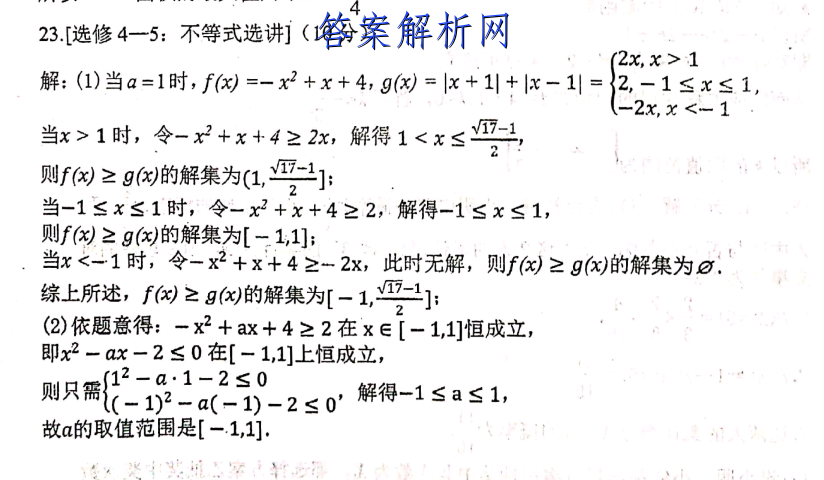 4
23.[选修 4—5：不等式选讲]（10分）
答案解析网
解：(1)当a=1时，f(x) =− x² + x + 4，g(x) = |x + 1| + |x − 1| = {2x, x > 1
2, − 1 ≤ x ≤ 1,
−2x, x <− 1
当x > 1 时，令− x² + x + 4 ≥ 2x，解得 1 < x ≤ (√17−1)/2，
则f(x) ≥ g(x)的解集为(1, (√17−1)/2]；
当−1 ≤ x ≤ 1 时，令− x² + x + 4 ≥ 2，解得−1 ≤ x ≤ 1，
则f(x) ≥ g(x)的解集为[ − 1,1]；
当x <− 1 时，令− x² + x + 4 ≥− 2x，此时无解，则f(x) ≥ g(x)的解集为∅.
综上所述，f(x) ≥ g(x)的解集为[ − 1, (√17−1)/2]；
(2)依题意得：− x² + ax + 4 ≥ 2 在 x ∈ [ − 1,1]恒成立，
即x² − ax − 2 ≤ 0 在[ − 1,1]上恒成立，
则只需{1² − a · 1 − 2 ≤ 0
( − 1)² − a( − 1) − 2 ≤ 0，解得−1 ≤ a ≤ 1，
故a的取值范围是[ − 1,1].